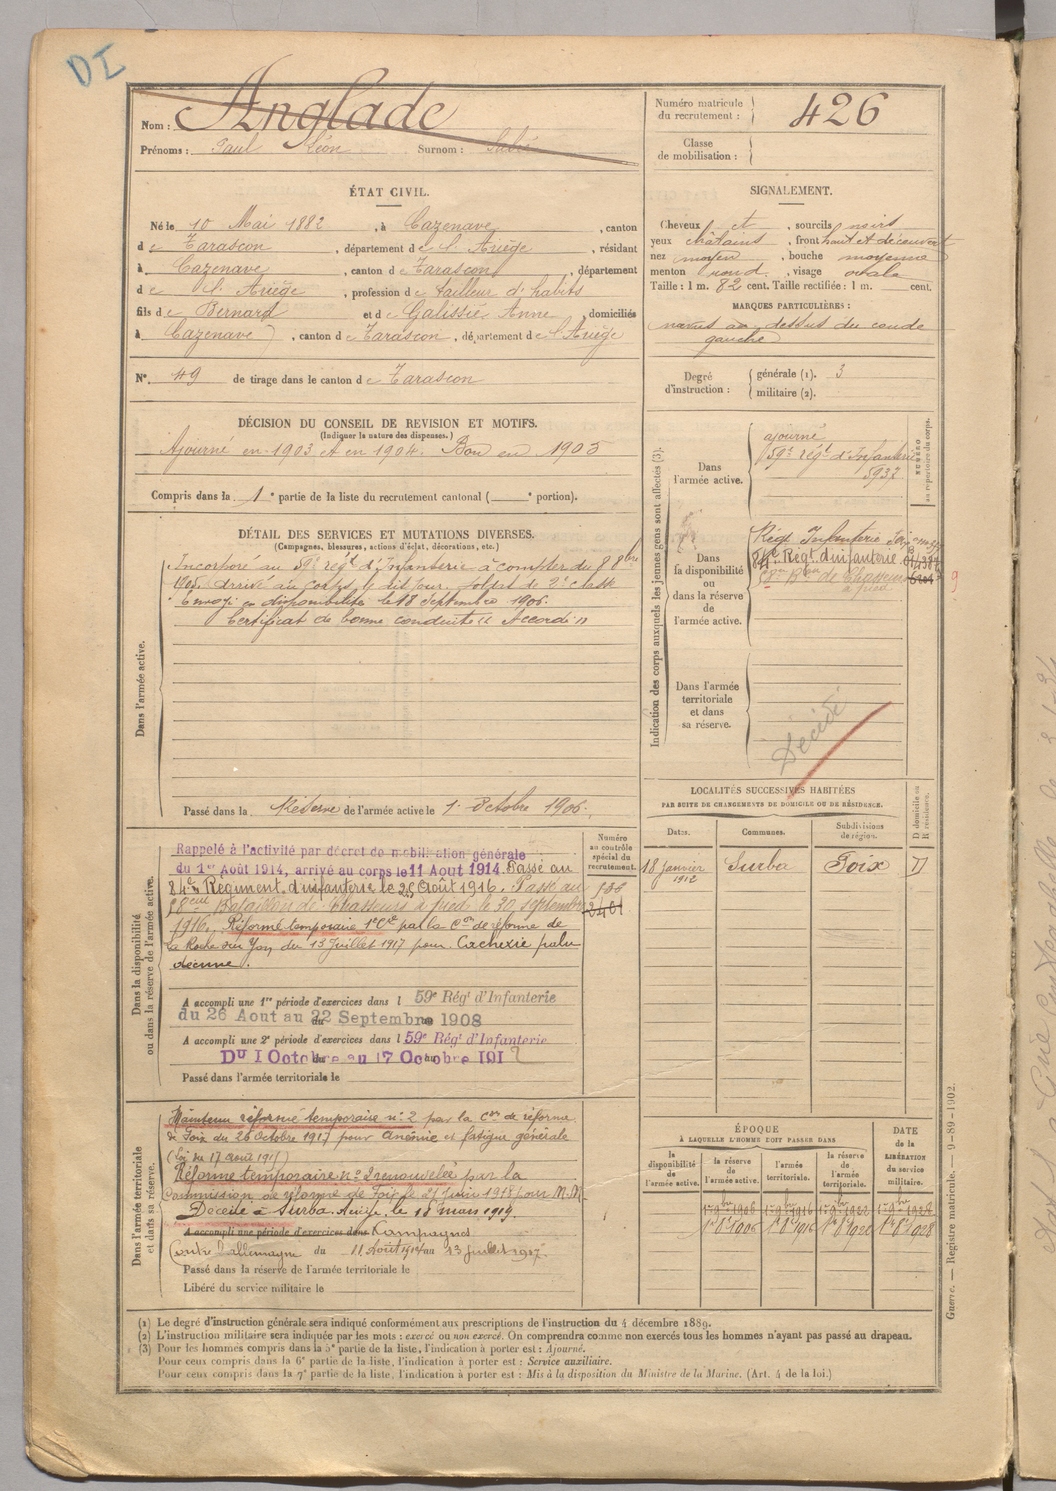 DI
Nom : Anglade
Prénoms : Paul Léon Surnom :
Numéro matricule
du recrutement : 426
Classe
de mobilisation :
ÉTAT CIVIL.
Né le 10 Mai 1882, à Cazenave, canton
de Tarascon, département de l'Ariège, résidant
à Cazenave, canton de Tarascon, département
de l'Ariège, profession de tailleur d'habits
fils de Bernard et de Galissié Anne, domiciliés
à Cazenave, canton de Tarascon, département de l'Ariège
N° 49 de tirage dans le canton de Tarascon
SIGNALEMENT.
Cheveux et, sourcils noirs
yeux châtains, front haut et découvert
nez moyen, bouche moyenne
menton rond, visage ovale
Taille : 1 m. 82 cent. Taille rectifiée : 1 m. cent.
MARQUES PARTICULIÈRES :
nævus au-dessus du coude
gauche
Degré
d'instruction :
générale (1). 3
militaire (2).
DÉCISION DU CONSEIL DE REVISION ET MOTIFS.
(Indiquer la nature des dispenses.)
Ajourné en 1903 et en 1904. Bon en 1905
Compris dans la 1e partie de la liste du recrutement cantonal ( e portion).
DÉTAIL DES SERVICES ET MUTATIONS DIVERSES.
(Campagnes, blessures, actions d'éclat, décorations, etc.)
Dans l'armée active.
Incorporé au 59e régt d'Infanterie à compter du 8 8bre
1905. arrivé au corps le dit jour, soldat de 2e classe
Envoyé en disponibilité le 18 Septembre 1906.
Certificat de bonne conduite "Accordé"
Passé dans la Réserve de l'armée active le 1er Octobre 1906.
Indication des corps auxquels les jeunes gens sont affectés (3).
NUMÉRO
au répertoire du corps.
Dans
l'armée active.
ajourné
59e régt d'Infanterie
5937
Dans
la disponibilité
ou
dans la réserve
de
l'armée active.
Régt Infanterie Foix
84e Régt d'infanterie
58me Bton de Chasseurs
à pied
Dans l'armée
territoriale
et dans
sa réserve.
Décédé
LOCALITÉS SUCCESSIVES HABITÉES
PAR SUITE DE CHANGEMENTS DE DOMICILE OU DE RÉSIDENCE.
D domicile ou
R résidence.
Dates. Communes. Subdivisions
de région.
18 Janvier
1912 Surba Foix D
Dans la disponibilité
ou dans la réserve de l'armée active.
Numéro
au contrôle
spécial du
recrutement.
Rappelé à l'activité par décret de mobilisation générale
du 1er Août 1914, arrivé au corps le 11 Aout 1914. Passé au
84e Régiment d'infanterie le 25 Août 1916. Passé au
58eme Bataillon de Chasseurs à pied le 30 septembre
1916. Réformé temporaire 1e Cie par la Con de réforme de
la Roche sur Yon du 13 Juillet 1917 pour Cachexie palu
déenne.
A accompli une 1re période d'exercices dans l 59e Régt d'Infanterie
du 26 Aout au 22 Septembre 1908
A accompli une 2e période d'exercices dans l 59e Régt d'Infanterie
Du 1 Octobre au 17 Octobre 191
Passé dans l'armée territoriale le
Dans l'armée territoriale
et dans sa réserve.
Maintenu réformé temporaire n° 2 par la Con de réforme
de Foix du 26 Octobre 1917 pour anémie et fatigue générale
(Loi du 17 Août 1917)
Réforme temporaire n° 2 renouvelée par la
Commission de réforme de Foix le 21 Juin 1918 pour M.M.
Décédé à Surba Ariège, le 18 mars 1919.
A accompli une période d'exercices dans Campagnes
Contre l'allemagne du 11 Août 1914 au 13 Juillet 1917.
Passé dans la réserve de l'armée territoriale le
Libéré du service militaire le
ÉPOQUE
À LAQUELLE L'HOMME DOIT PASSER DANS
DATE
de la
LIBÉRATION
du service
militaire.
la disponibilité de l'armée active.
la réserve de l'armée active.
l'armée territoriale.
la réserve de l'armée territoriale.
1er 9bre 1906 1er 9bre 1916 1er 9bre 1922 1er 9bre 1928
1er 8bre 1906 1er 8bre 1916 1er 8bre 1922 1er 8bre 1928
(1) Le degré d'instruction générale sera indiqué conformément aux prescriptions de l'instruction du 4 décembre 1889.
(2) L'instruction militaire sera indiquée par les mots : exercé ou non exercé. On comprendra comme non exercés tous les hommes n'ayant pas passé au drapeau.
(3) Pour les hommes compris dans la 5e partie de la liste, l'indication à porter est : Ajourné.
Pour ceux compris dans la 6e partie de la liste, l'indication à porter est : Service auxiliaire.
Pour ceux compris dans la 7e partie de la liste, l'indication à porter est : Mis à la disposition du Ministre de la Marine. (Art. 4 de la loi.)
Guerre. — Registre matricule. — 9-89-1902.